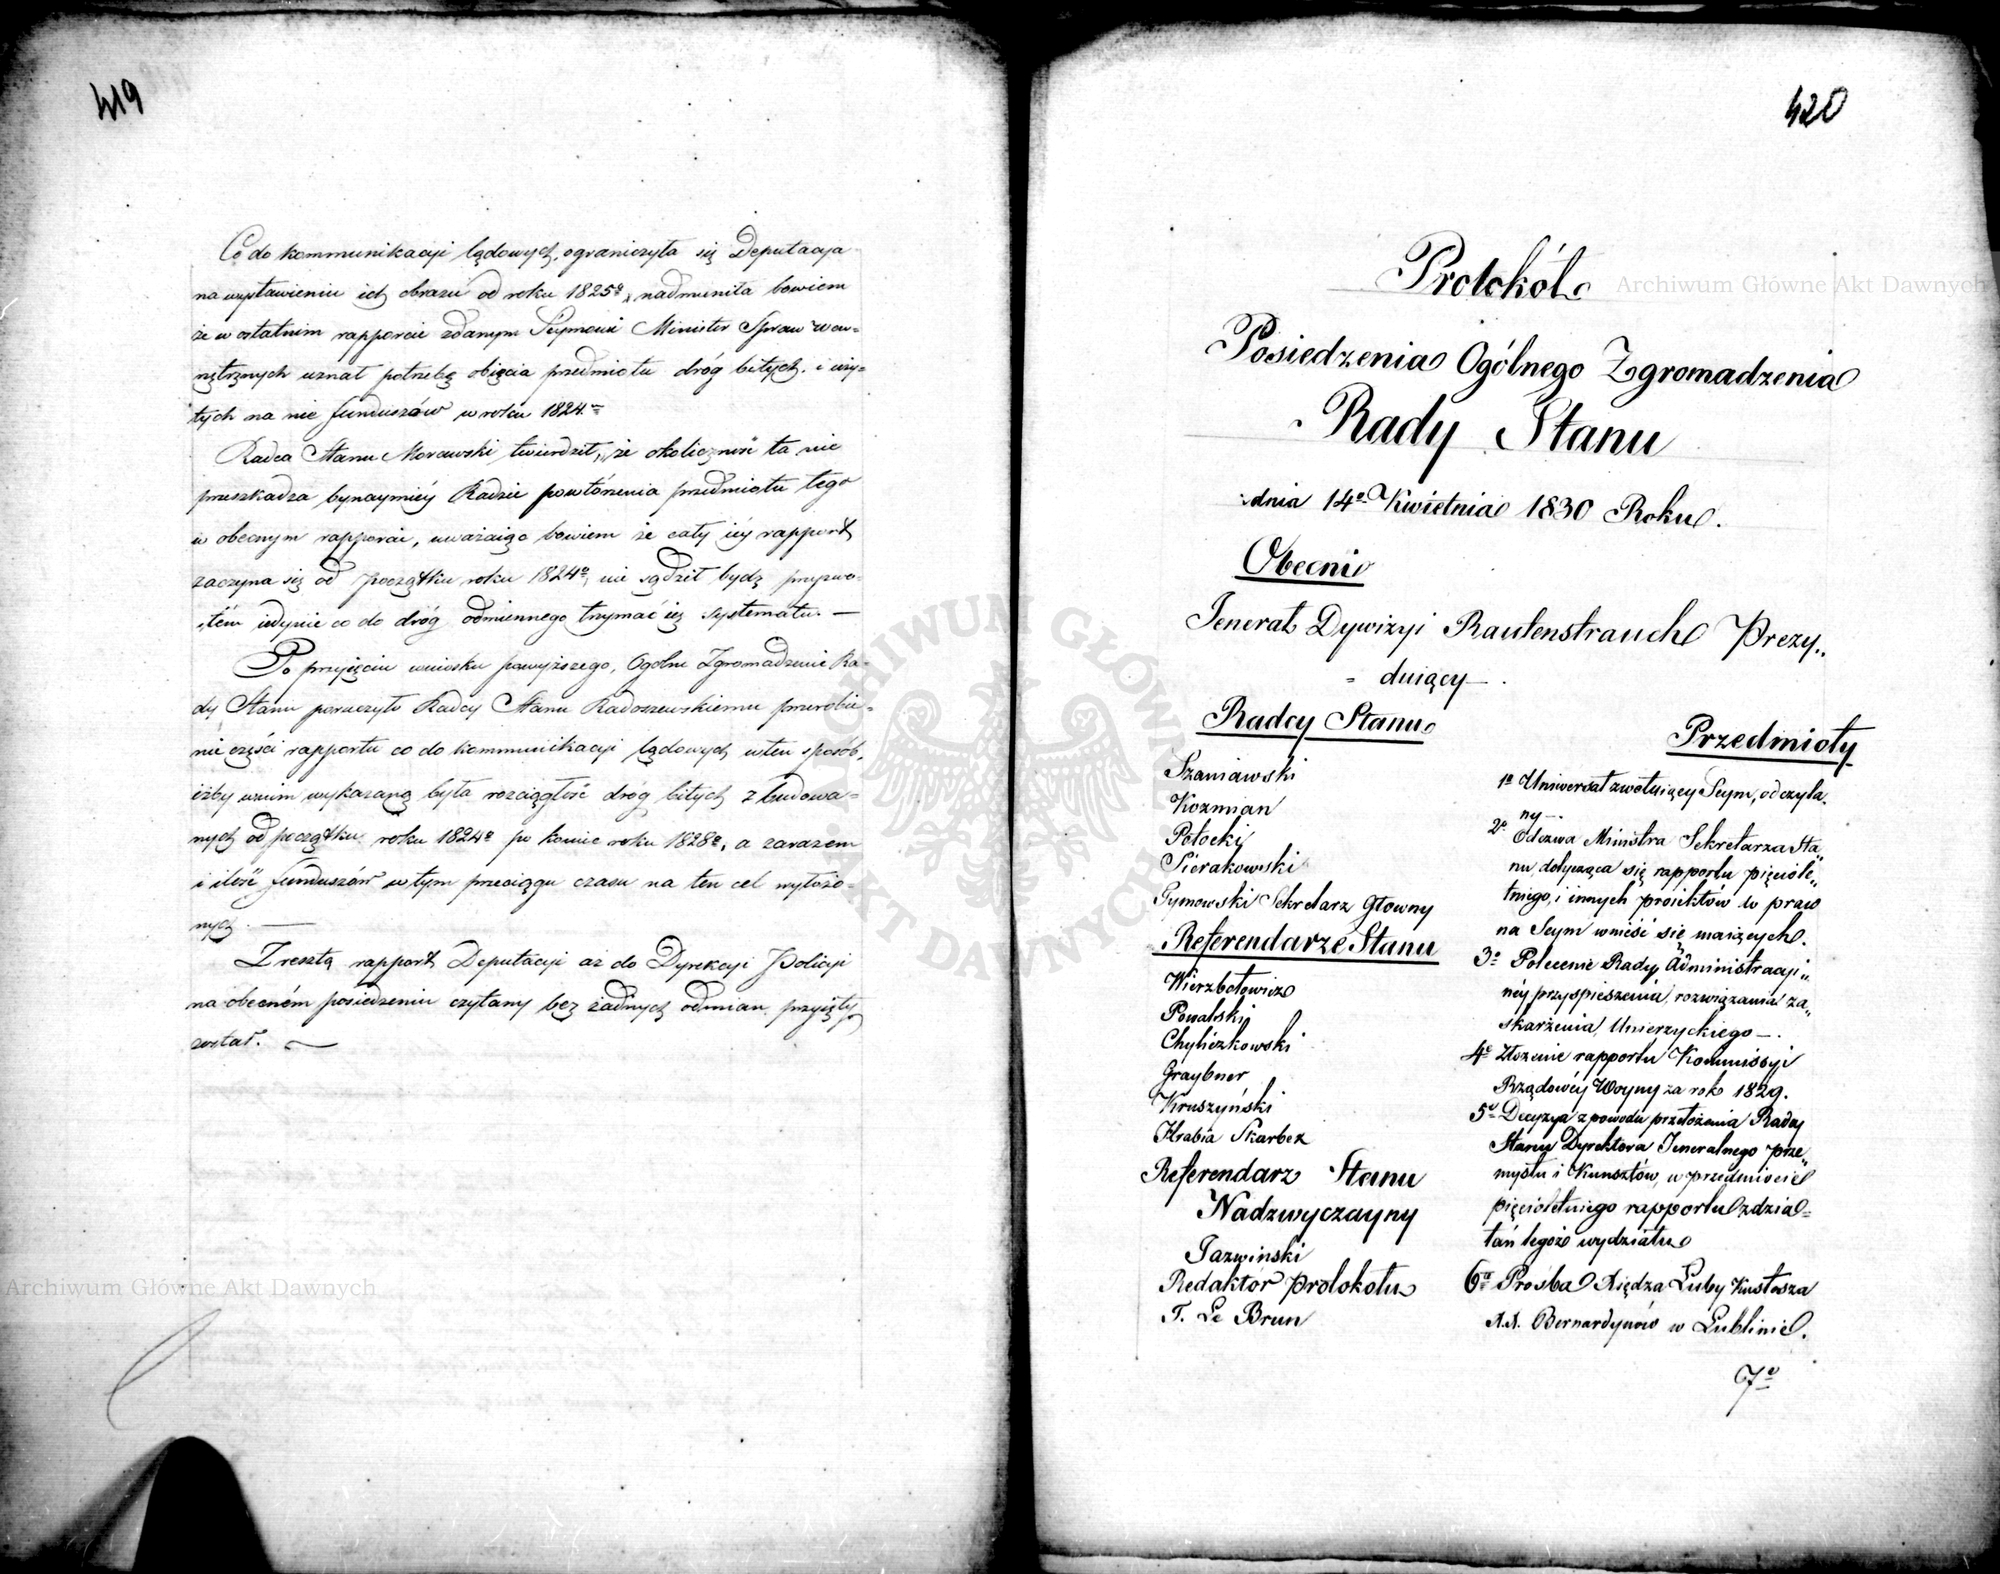 419
Co do kommunikacyi lądowych, ograniczyła się Deputacya
na wystawieniu ich obrazu od roku 1825º, nadmieniła bowiem
że w ostatnim rapporcie zdanym Seymowi Minister Spraw Wew-
nętrznych uznał potrzebę objęcia przedmiotu dróg bitych i uży-
tych na nie funduszów w roku 1824.
Radca Stanu Morawski twierdził, że okoliczność ta nie
przeszkadza bynaymniéy Radzie powtórzenia przedmiotu tego
w obecnym rapporcie, uważaiąc bowiem że cały iéy rapport
zaczyna się od początku roku 1824º, nie sądził bydź przyzwo-
itém iedynie co do dróg odmiennego trzymać się systematu. —
Po przyięciu wniosku powyższego, Ogólne Zgromadzenie Ra-
dy Stanu poruczyło Radcy Stanu Radoszewskiemu przerobie-
nie części rapportu co do kommunikacyi lądowych w ten sposób,
iżby w nim wykazaną była rozciągłość dróg bitych zbudowa-
nych od początku roku 1824º po koniec roku 1828º, a zarazem
i ilość funduszów w tym przeciągu czasu na ten cel wyłożo-
nych. —
Zresztą rapport Deputacyi aż do Dyrekcyi Policyi
na obecném posiedzeniu czytany bez żadnych odmian przyięty
został. —
420
Protokół
Posiedzenia Ogólnego Zgromadzenia
Rady Stanu
dnia 14º Kwietnia 1830 Roku.
Obecni
Jenerał Dywizyi Rautenstrauch Prezy„
duiący —.
Radcy Stanu
Szaniawski
Kozmian
Potocki
Sierakowski
Tymowski Sekretarz Główny
Referendarze Stanu
Wierzbołowicz
Powalski
Chyliczkowski
Graybner
Kruszyński
Hrabia Skarbek
Referendarz Stanu
Nadzwyczayny
Jazwinski
Redaktór Protokołu
T. Le Brun
Przedmioty
1º Uniwersał zwołuiący Seym, odczyta„
ny —.
2º Odezwa Ministra Sekretarza Sta„
nu, dotycząca się rapportu pięciole„
tniego, i innych proiektów do praw
na Seym wnieść się maiących.
3º Polecenie Rady Administracyi„
néy przyspieszenia rozwiązania za„
skarżenia Unierzyckiego —.
4º Złożenie rapportu Kommissyi
Rządowéy Woyny za rok 1829.
5º Decyzya z powodu przełożenia Radzy
Stanu Dyrektora Jeneralnego Prze„
mysłu i Kunsztów, w przedmiocie
pięcioletniego rapportu z dzia-
łań tegoż wydziału
6º Prośba Xiędza Luby Kustosza
X.X. Bernardynów w Lublinie.
7º
Archiwum Główne Akt Dawnych
Archiwum Główne Akt Dawnych
ARCHIWUM GŁÓWNE AKT DAWNYCH